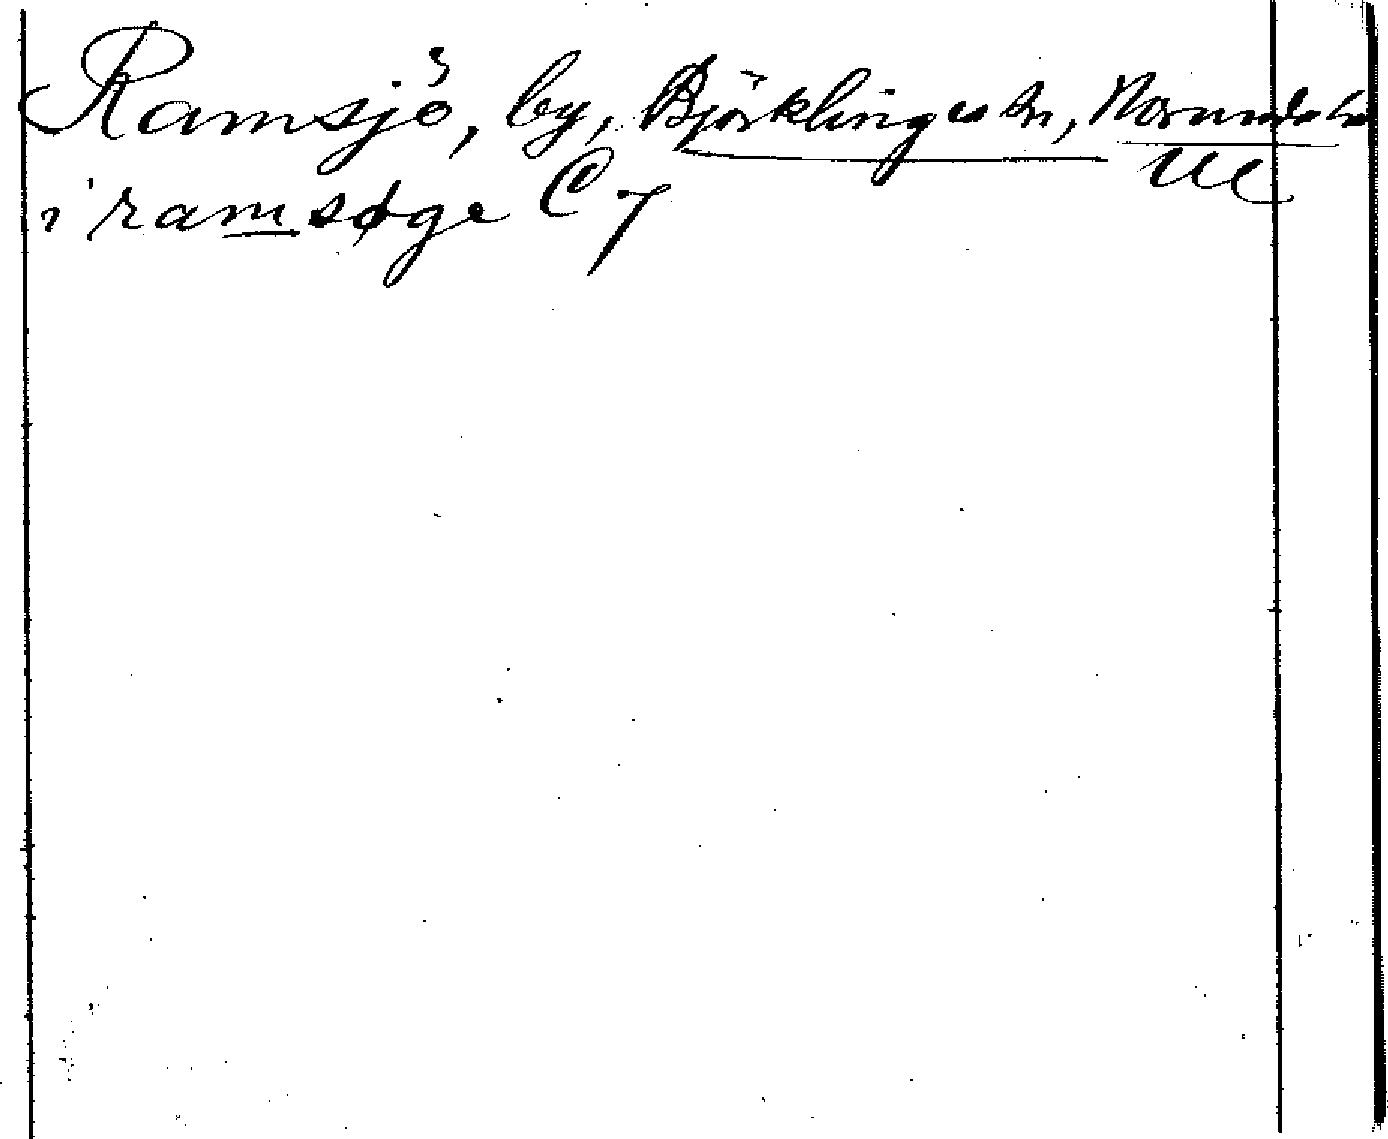 Ramsjö, by, Björklinge sn, Norunda hd
Ul
i ramsøge C 7